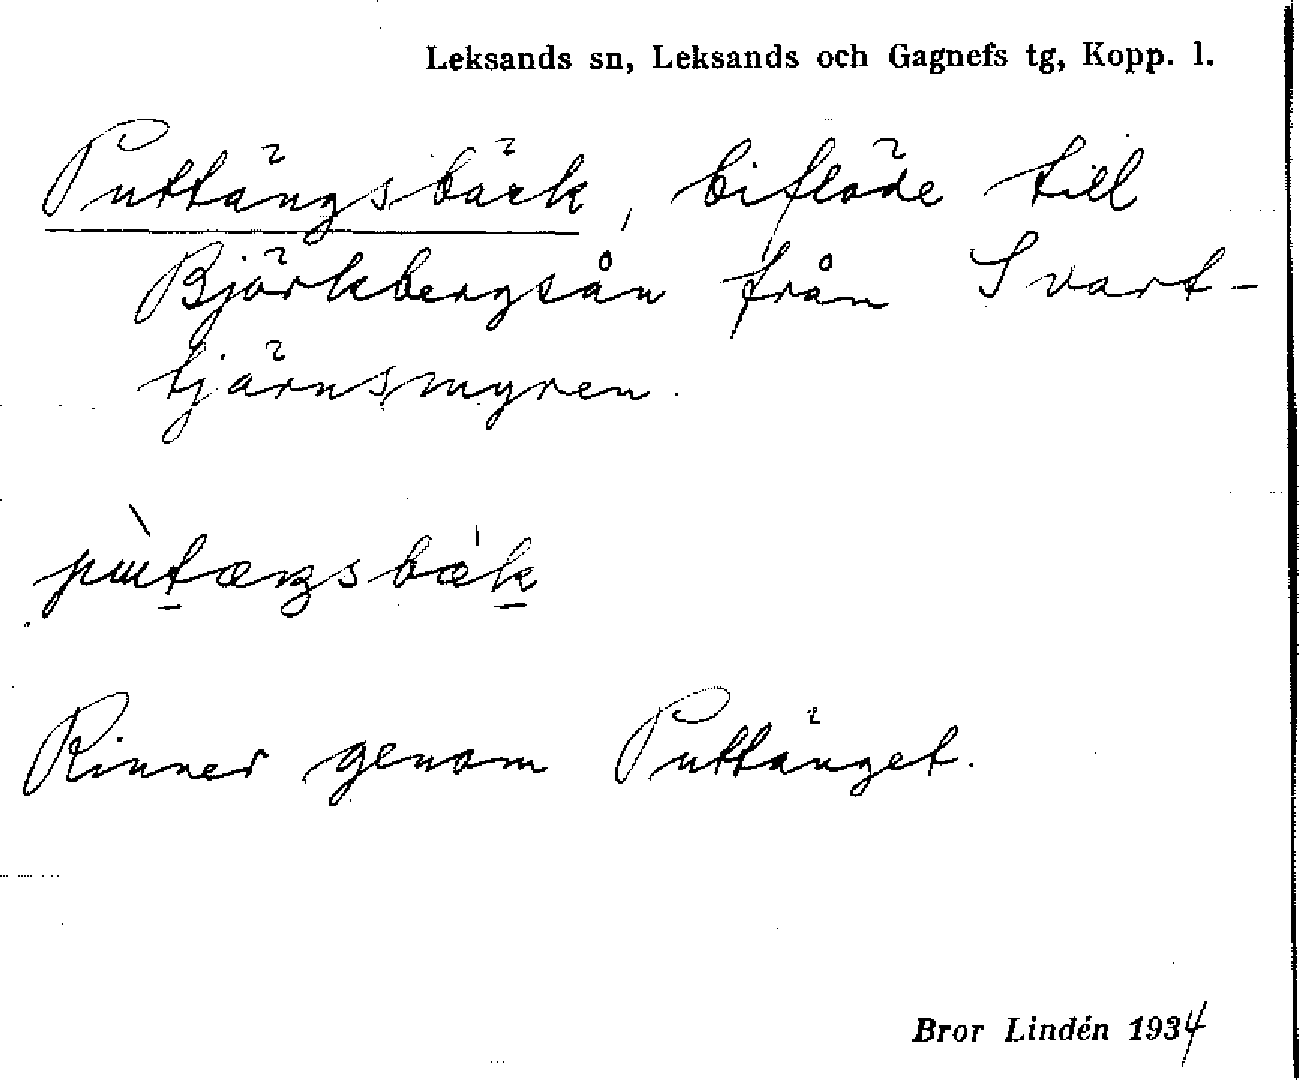 Leksands sn, Leksands och Gagnefs tg, Kopp. l.
Puttängsbäck, biflöde till
Björkbergsån från Svart-
tjärnsmyren.
Rinner genom Puttänget.
Bror Lindén 1934